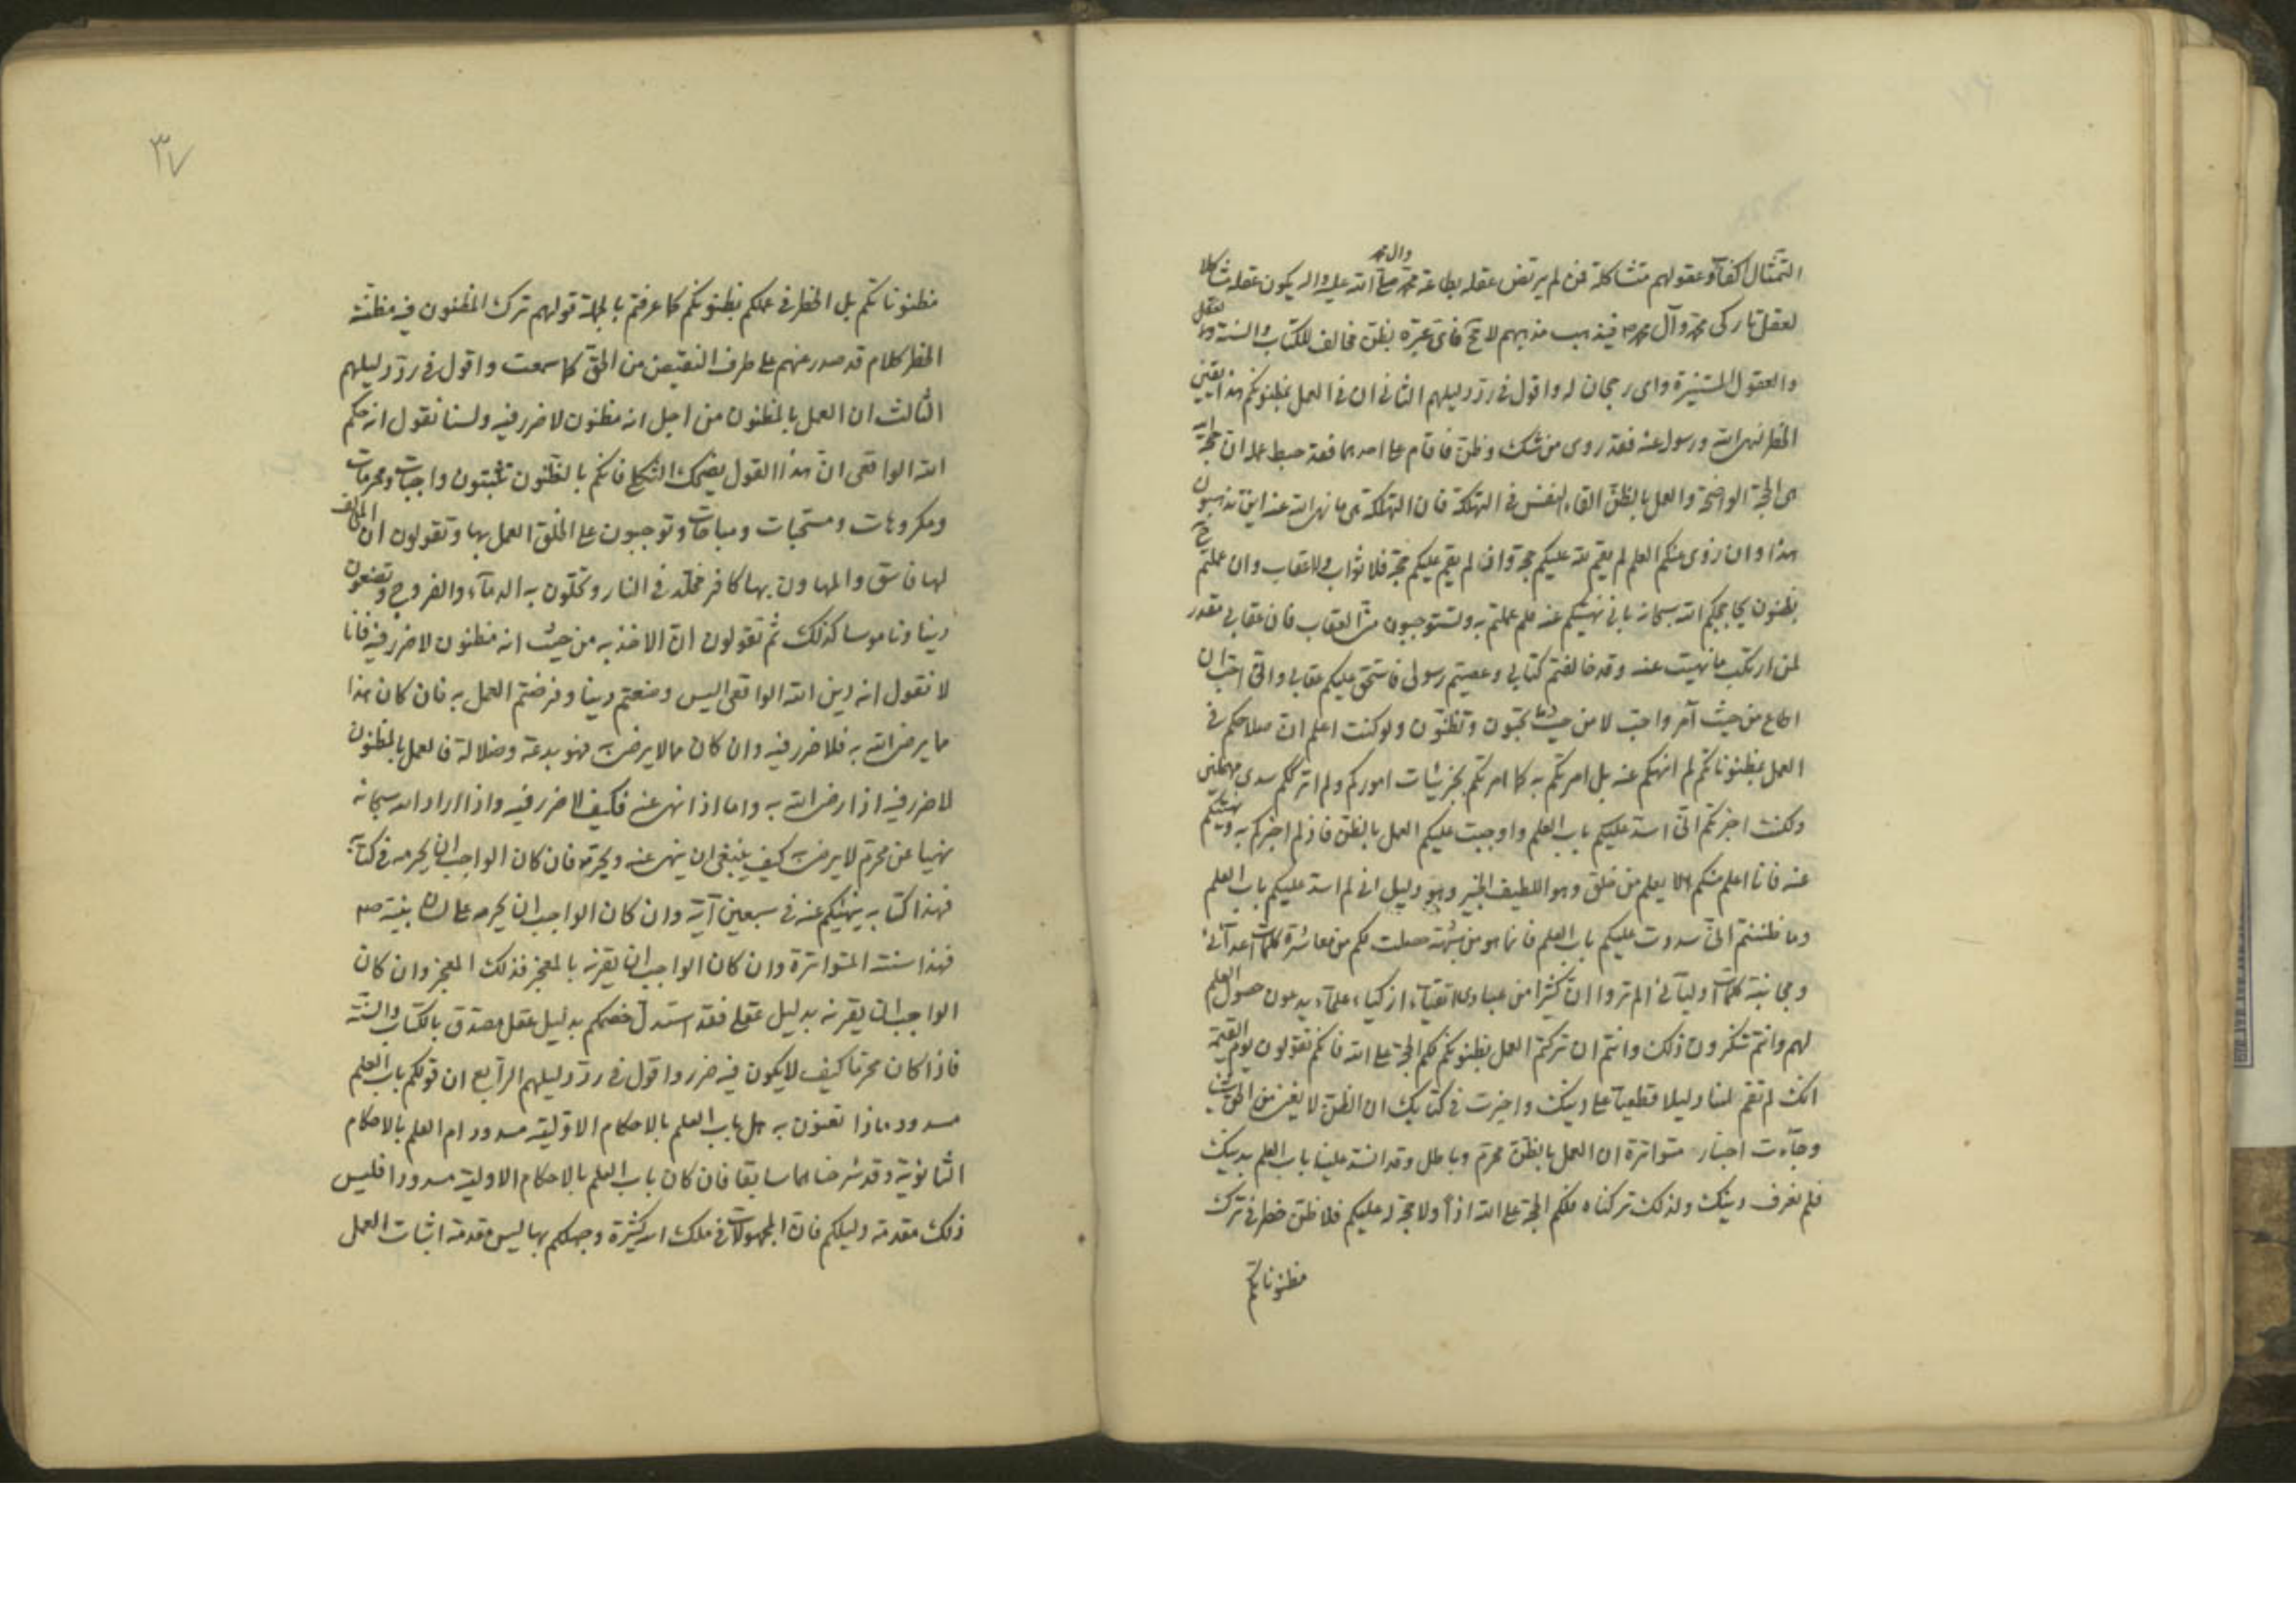 التمثال اكفآء وعقولهم متشاكلة فمن لم يرتض عقله بطاعة محمد وال محمد صلى الله عليه واله يكون عقله مشاكلا
لعقل تاركى محمد وآل محمد ص فيذهب مذهبهم لا مح فاى عبرة بظن مخالف للكتاب والسنة والعقل
والعقول المستنيرة واى رجحان له واقول فى رد دليلهم الثانى ان فى العمل بمظنونكم هذا يقين
الخطر نهى الله ورسوله عنه فقد روى من شك وظن فاقام على احدهما فقد حبط عمله ان حجة الله
هى الحجة الواضحة والعمل بالظن القاء النفس فى التهلكة فان التهلكة هى ما نهى الله عنه اين تذهبون
هذا وان زوى عنكم العلم لم يقم لله عليكم حجة وان لم يقم عليكم حجة فلا ثواب ولا عقاب وان عملتم ح
بظنون يحاجكم الله سبحانه بانى نهيتكم عنه فلم عملتم به وتستوجبون منه العقاب فان عقابى مقدر
لمن ارتكب ما نهيت عنه وقد خالفتم كتابى وعصيتم رسولى فاستحق عليكم عقابى وانى احب ان
اطاع من حيث آمر واحب لا من حيث تحبون وتظنون ولو كنت اعلم ان صلاحكم فى
العمل بمظنوناتكم لم انهكم عنه بل امرتكم به كما امرتكم بجزئيات اموركم ولم اترككم سدى مهملين
ولكنت اخبرتكم انى اسد عليكم باب العلم واوجبت عليكم العمل بالظن فاذ لم اخبركم به ونهيتكم
عنه فانا اعلم منكم الا يعلم من خلق وهو اللطيف الخبير وهو دليل انى لم اسد عليكم باب العلم
وما ظننتم انى سددت عليكم باب العلم فانما هو من شبهة حصلت لكم من معاشرة كلمات اعدآئى
ومجانبة كلمات اوليآئى الم تروا ان كثيرا من عبادى اتقيآء ازكياء علمآء يدعون حصول العلم
لهم وانتم تنكرون ذلك وانتم ان تركتم العمل بظنونكم فلكم الحجة على الله فانكم تقولون يوم القيمة
انك لم تقم لنا دليلا قطعيا على دينك واخبرت فى كتابك ان الظن لا يغنى من الحق شيئا
وجآءت اخبار متواترة ان العمل بالظن محرم وباطل وقد انسد علينا باب العلم بدينك
فلم نعرف دينك ولذلك تركناه فلكم الحجة على الله اذاً ولا حجة له عليكم فلا ظن خطر فى ترك
مظنوناتكم
٣٧
مظنوناتكم بل الخطر فى عملكم بظنونكم كما عرفتم بالجملة قولهم ترك المظنون فيه مظنة
الخطر كلام قد صدر عنهم على طرف النقيض من الحق كما سمعت واقول فى رد دليلهم
الثالث ان العمل بالمظنون من اجل انه مظنون لا ضرر فيه ولسنا نقول انه حكم
الله الواقعى ان هذا القول يضحك الثكلى فانكم بالظنون تثبتون واجبات ومحرمات
ومكروهات ومستحبات ومباحات وتوجبون على الخلق العمل بها وتقولون ان المخالف
لها فاسق والمهاون بها كافر مخلد فى النار وتحلون به الدمآء والفروج وتضعون
دينا وناموسا كذلك ثم تقولون ان الاخذ به من حيث انه مظنون لا ضرر فيه فانا
لا نقول انه دين الله الواقعى اليس وضعتم دينا وفرضتم العمل به فان كان هذا
ما يرضى الله به فلا ضرر فيه وان كان مما لا يرضى به فهو بدعة وضلالة فالعمل بالمظنون
لا ضرر فيه اذا رضى الله به واما اذا نهى عنه فكيف لا ضرر فيه واذا اراد الله سبحانه
نهيا عن محرم لا يرضى به كيف ينبغى ان ينهى عنه ويحرمه فان كان الواجب ان يحرمه فى كتابه
فهذا كتابه ينهيكم عنه فى سبعين آية وان كان الواجب ان يحرمه على لسان نبيه ص
فهذا سنته المتواترة وان كان الواجب ان يقرنه بالمعجز فذلك المعجز وان كان
الواجب ان يقرنه بدليل عقلى فقد استدل خصمكم بدليل عقل مصدق بالكتاب والسنة
فاذا كان محرما كيف لا يكون فيه ضرر واقول فى رد دليلهم الرابع ان قولكم باب العلم
مسدود ماذا تعنون به هل باب العلم بالاحكام الاولية مسدود ام العلم بالاحكام
الثانوية وقد شرحناهما سابقا فان كان باب العلم بالاحكام الاولية مسدودا فليس
ذلك مقدمة دليلكم فان المجهولات فى ملك الله كثيرة وجهلكم بها ليس مقدمة اثبات العمل